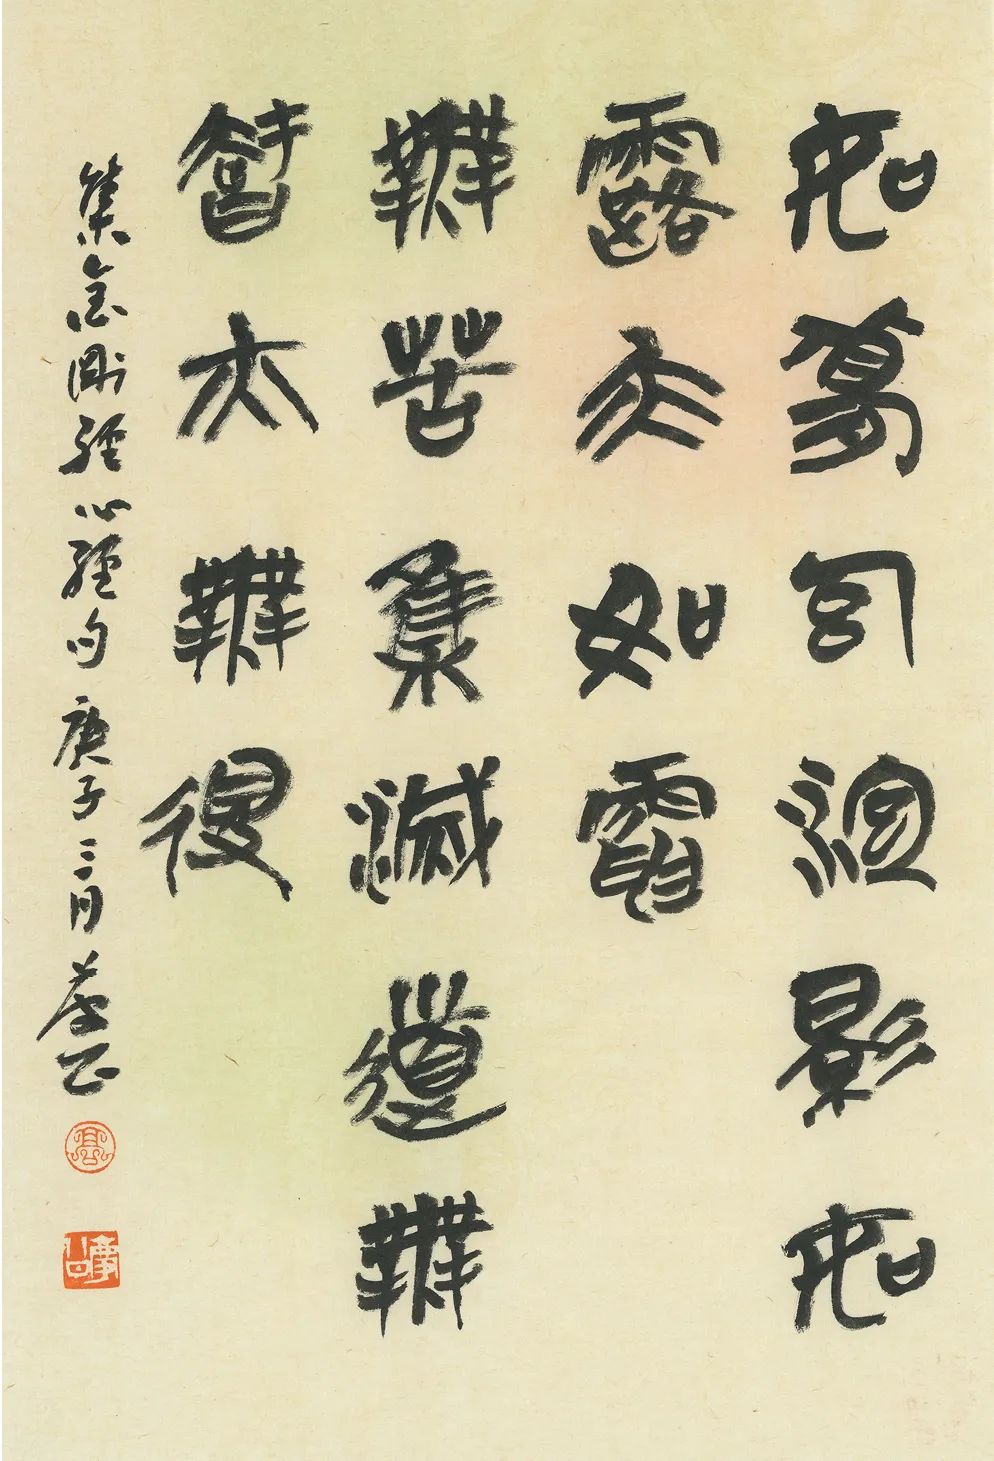 如夢幻泡影如
露亦如電
無苦集滅道無
智亦無得
集金剛經心經句 庚子三月